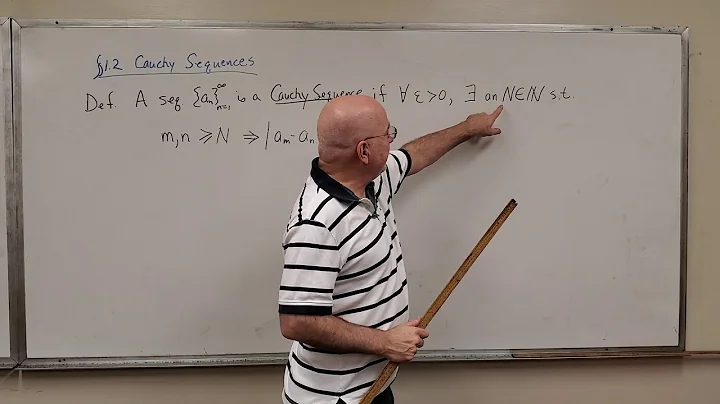 §1.2 Cauchy Sequences
Def. A seq. {aₙ}ₙ₌₁^∞ is a Cauchy Sequence if ∀ ε>0, ∃ an N∈ℕ s.t.
m,n ≥ N ⇒ |aₘ-aₙ